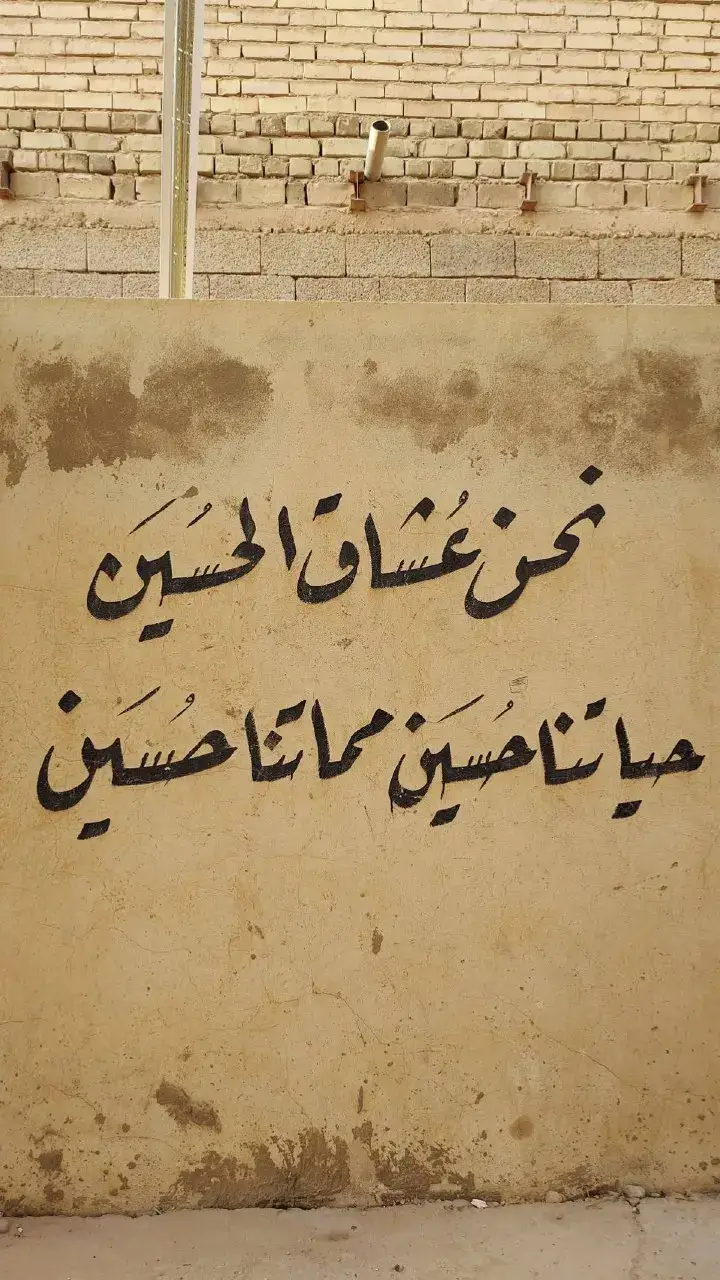 نحن عُشاق الحُسَين
حياتنا حُسَين مماتنا حُسَين